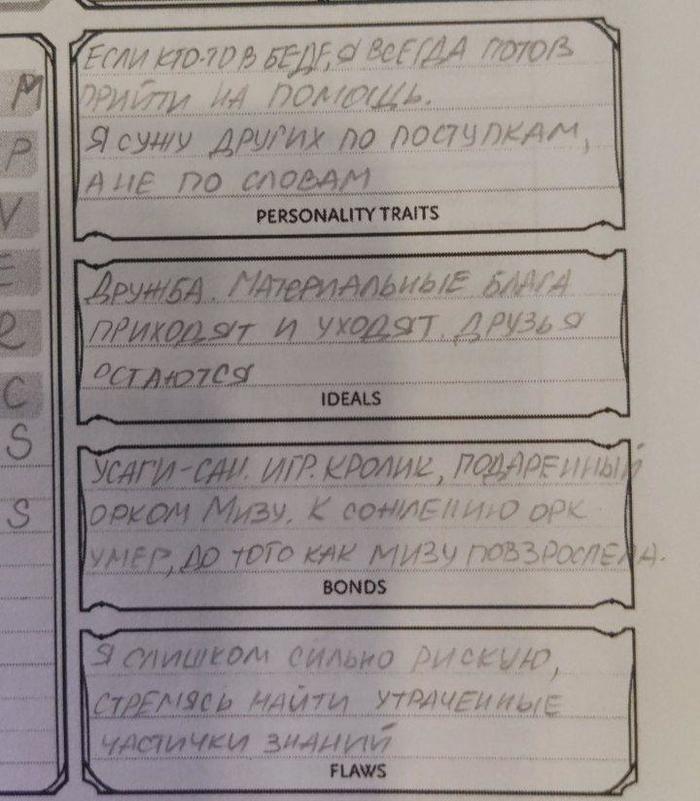 M
P
V
E
R
C
S
S
ЕСЛИ КТО-ТО В БЕДЕ, Я ВСЕГДА ГОТОВ
ПРИЙТИ НА ПОМОЩЬ.
Я СУЖУ ДРУГИХ ПО ПОСТУПКАМ,
А НЕ ПО СЛОВАМ
PERSONALITY TRAITS
ДРУЖБА. МАТЕРИАЛЬНЫЕ БЛАГА
ПРИХОДЯТ И УХОДЯТ. ДРУЗЬЯ
ОСТАЮТСЯ
IDEALS
УСАГИ-САН. ИГР. КРОЛИК, ПОДАРЕННЫЙ
ОРКОМ МИЗУ. К СОЖЛЕНИЮ ОРК
УМЕР, ДО ТОГО КАК МИЗУ ПОВЗРОСЛЕЛА.
BONDS
Я СЛИШКОМ СИЛЬНО РИСКУЮ,
СТРЕМЯСЬ НАЙТИ УТРАЧЕННЫЕ
ЧАСТИЧКИ ЗНАНИЙ
FLAWS